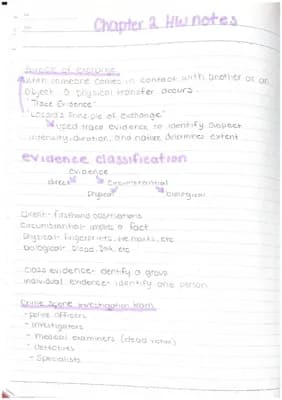 Chapter 2 HW notes
Purpose of exchange
when someone comes in contact with another or an
object a physical transfer occurs.
"Trace Evidence"
"Locard's Principle of Exchange"
used trace evidence to identify suspect
intensity, duration, and nature determines extent
evidence classification
Evidence
direct Circumstantial
Physical biological
Direct- firsthand observations
Circumstantial- implies a fact
Physical- fingerprints, tire marks, etc
biological- blood, DNA, etc
class evidence- identify a group
individual evidence- identify one person
Crime scene investigation team
- police officers
- investigators
- medical examiners (dead victim)
- detectives
- Specialists